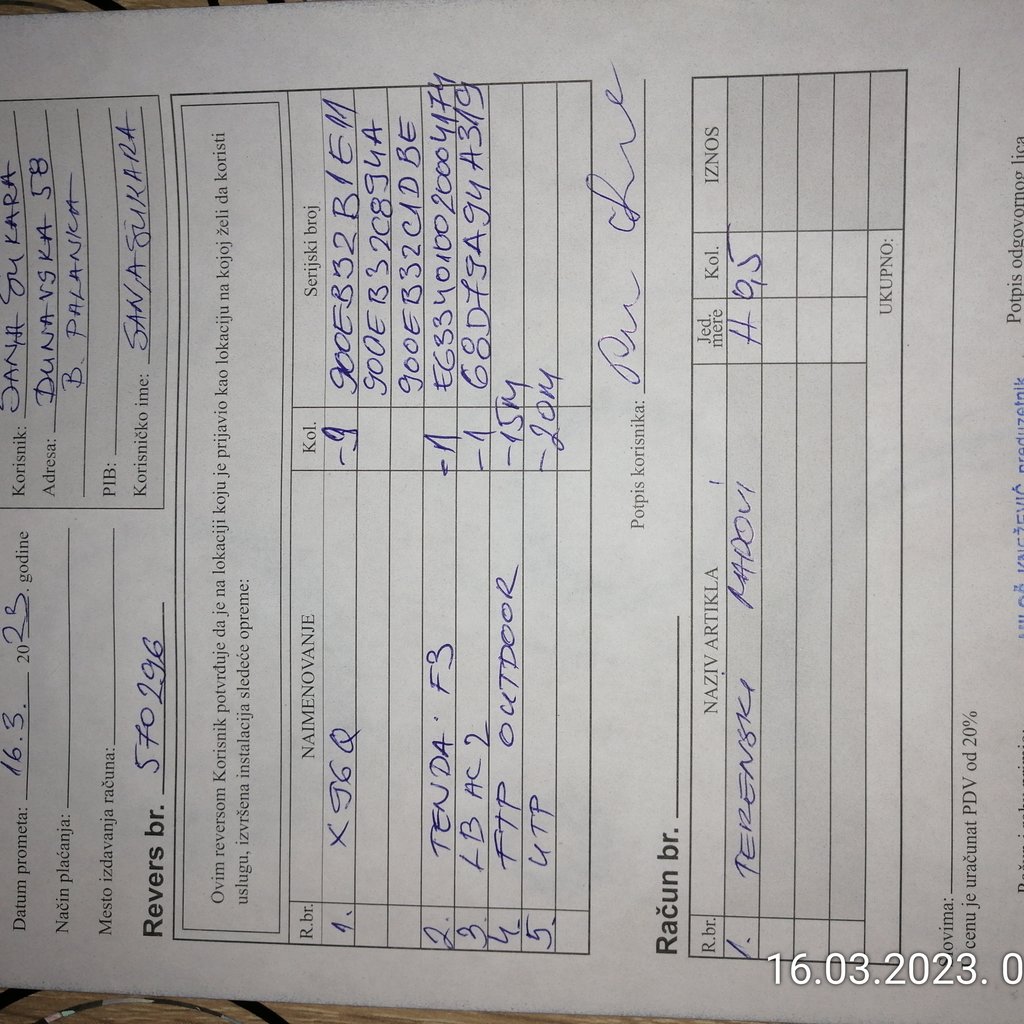 Datum prometa: 16.3. 2023. godine
Način plaćanja:
Mesto izdavanja računa:
Revers br. 570296
Korisnik: SANJA ŠUKARA
Adresa: DUNAVSKA 58
B. PALANKA
PIB:
Korisničko ime: SANJAŠUKARA
Ovim reversom Korisnik potvrđuje da je na lokaciji koju je prijavio kao lokaciju na kojoj želi da koristi
uslugu, izvršena instalacija sledeće opreme:
R.br. NAIMENOVANJE Kol. Serijski broj
1. X96Q -9 900EB32B1E11
900EB32C894A
900EB32C1DBE
2. TENDA F3 -1 E6334010020004174
3. LB AC2 -1 68D79A94A319
4. FTP OUTDOOR -15M
5. UTP -20M
Potpis korisnika:
Račun br.
R.br. NAZIV ARTIKLA Jed. mere Kol. IZNOS
1. TERENSKI RADOVI H 0,5
UKUPNO:
U cenu je uračunat PDV od 20%
Potpis odgovornog lica
MILOŠ KNEŽEVIĆ preduzetnik
16.03.2023. 0